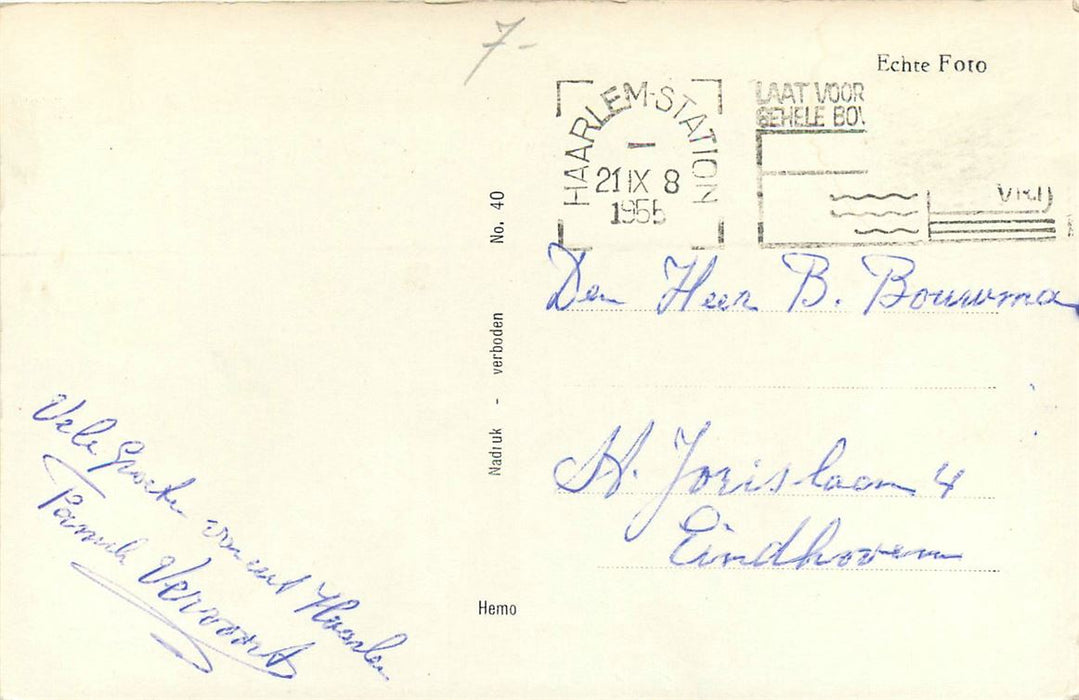 7-
Echte Foto
HAARLEM-STATION
21 IX 8
1955
LAAT VOOR
GEHELE BOV
VRIJ
Den Heer B. Bouwma
St. Jorislaan 4
Eindhoven
No. 40
Nadruk - verboden
Hemo
Vele Groeten vanuit Haarlem
Familie Vervoort